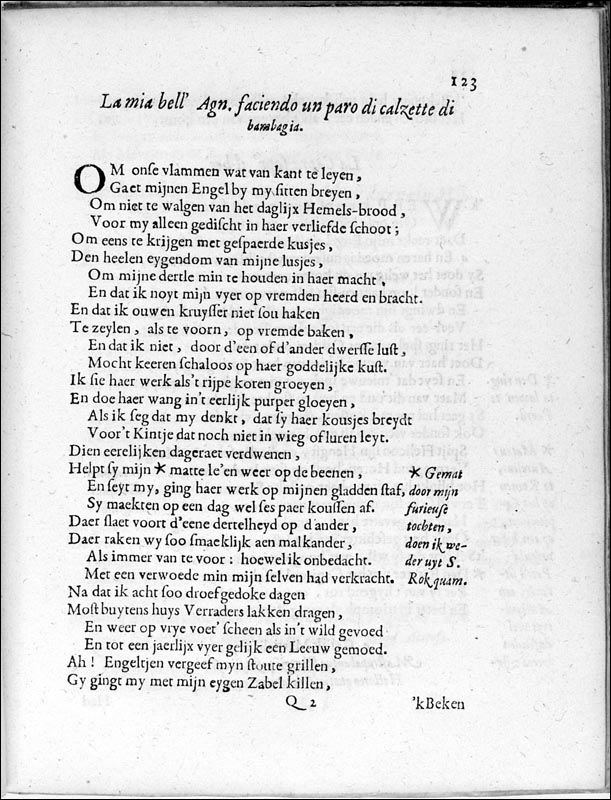 123
La mia bell' Agn. faciendo un paro di calzette di
bambagia.
OM onse vlammen wat van kant te leyen,
Gaet mijnen Engel by my sitten breyen,
Om niet te walgen van het daglijx Hemels-brood,
Voor my alleen gedischt in haer verliefde schoot;
Om eens te krijgen met gespaerde kusjes,
Den heelen eygendom van mijne lusjes,
Om mijne dertle min te houden in haer macht,
En dat ik noyt mijn vyer op vremden heerd en bracht.
En dat ik ouwen kruysser niet sou haken
Te zeylen, als te voorn, op vremde baken,
En dat ik niet, door d'een of d'ander dwersse lust,
Mocht keeren schaloos op haer goddelijke kust.
Ik sie haer werk als't rijpe koren groeyen,
En doe haer wang in't eerlijk purper gloeyen,
Als ik seg dat my denkt, dat sy haer kousjes breydt
Voor't Kintje dat noch niet in wieg of luren leyt.
Dien eerelijken dageraet verdwenen,
Helpt sy mijn * matte le'en weer op de beenen,
En seyt my, ging haer werk op mijnen gladden staf,
Sy maekten op een dag wel ses paer koussen af.
Daer slaet voort d'eene dertelheyd op d'ander,
Daer raken wy soo smaeklijk aen malkander,
Als immer van te voor: hoewel ik onbedacht.
Met een verwoede min mijn selven had verkracht.
* Gemat
door mijn
furieuse
tochten,
doen ik we-
der uyt S.
Rok quam.
Na dat ik acht soo droefgedoke dagen
Most buytens huys Verraders lakken dragen,
En weer op vrye voet' scheen als in't wild gevoed
En tot een jaerlijx vyer gelijk een Leeuw gemoed.
Ah! Engeltjen vergeef myn stoute grillen,
Gy gingt my met mijn eygen Zabel killen,
Q 2
'kBeken